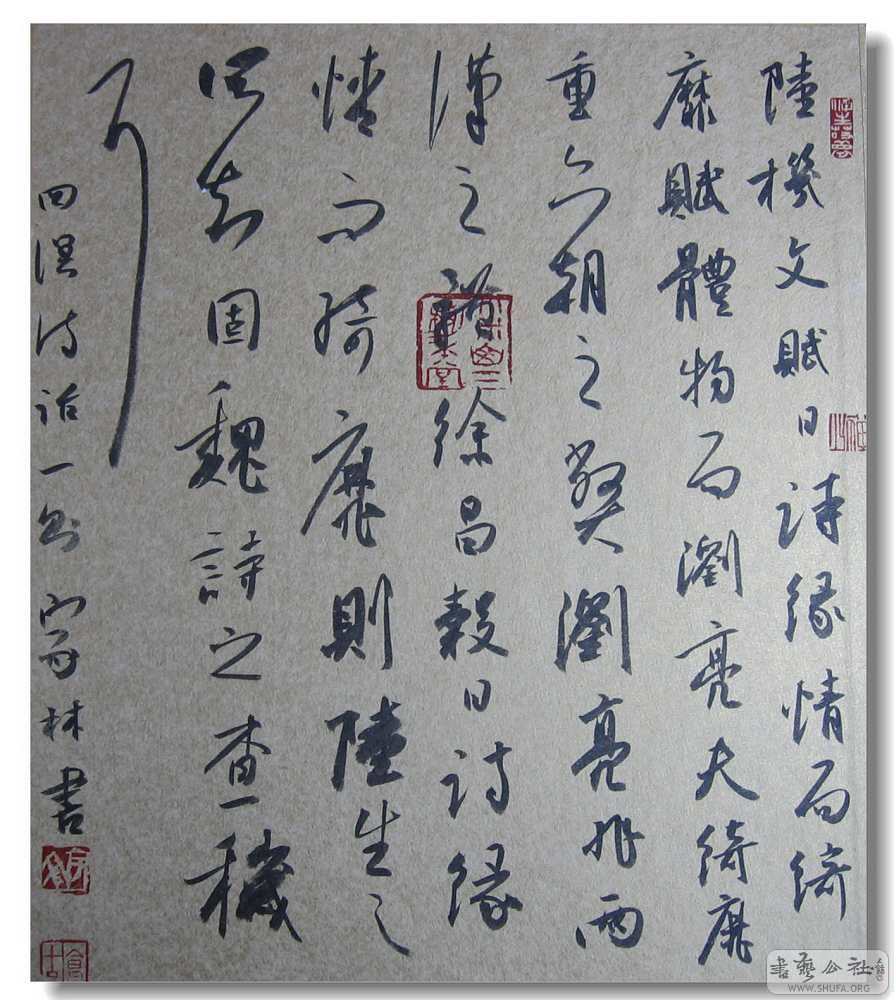 陸機文賦曰詩緣情而綺
靡賦體物而瀏亮夫綺靡
重六朝之獘瀏亮非兩
漢之徐昌穀曰詩緣
情而綺靡則陸生之
所知固魏詩之查穢
耳
四溟诗话一则 林書
書藝公社
WWW.SHUFA.ORG